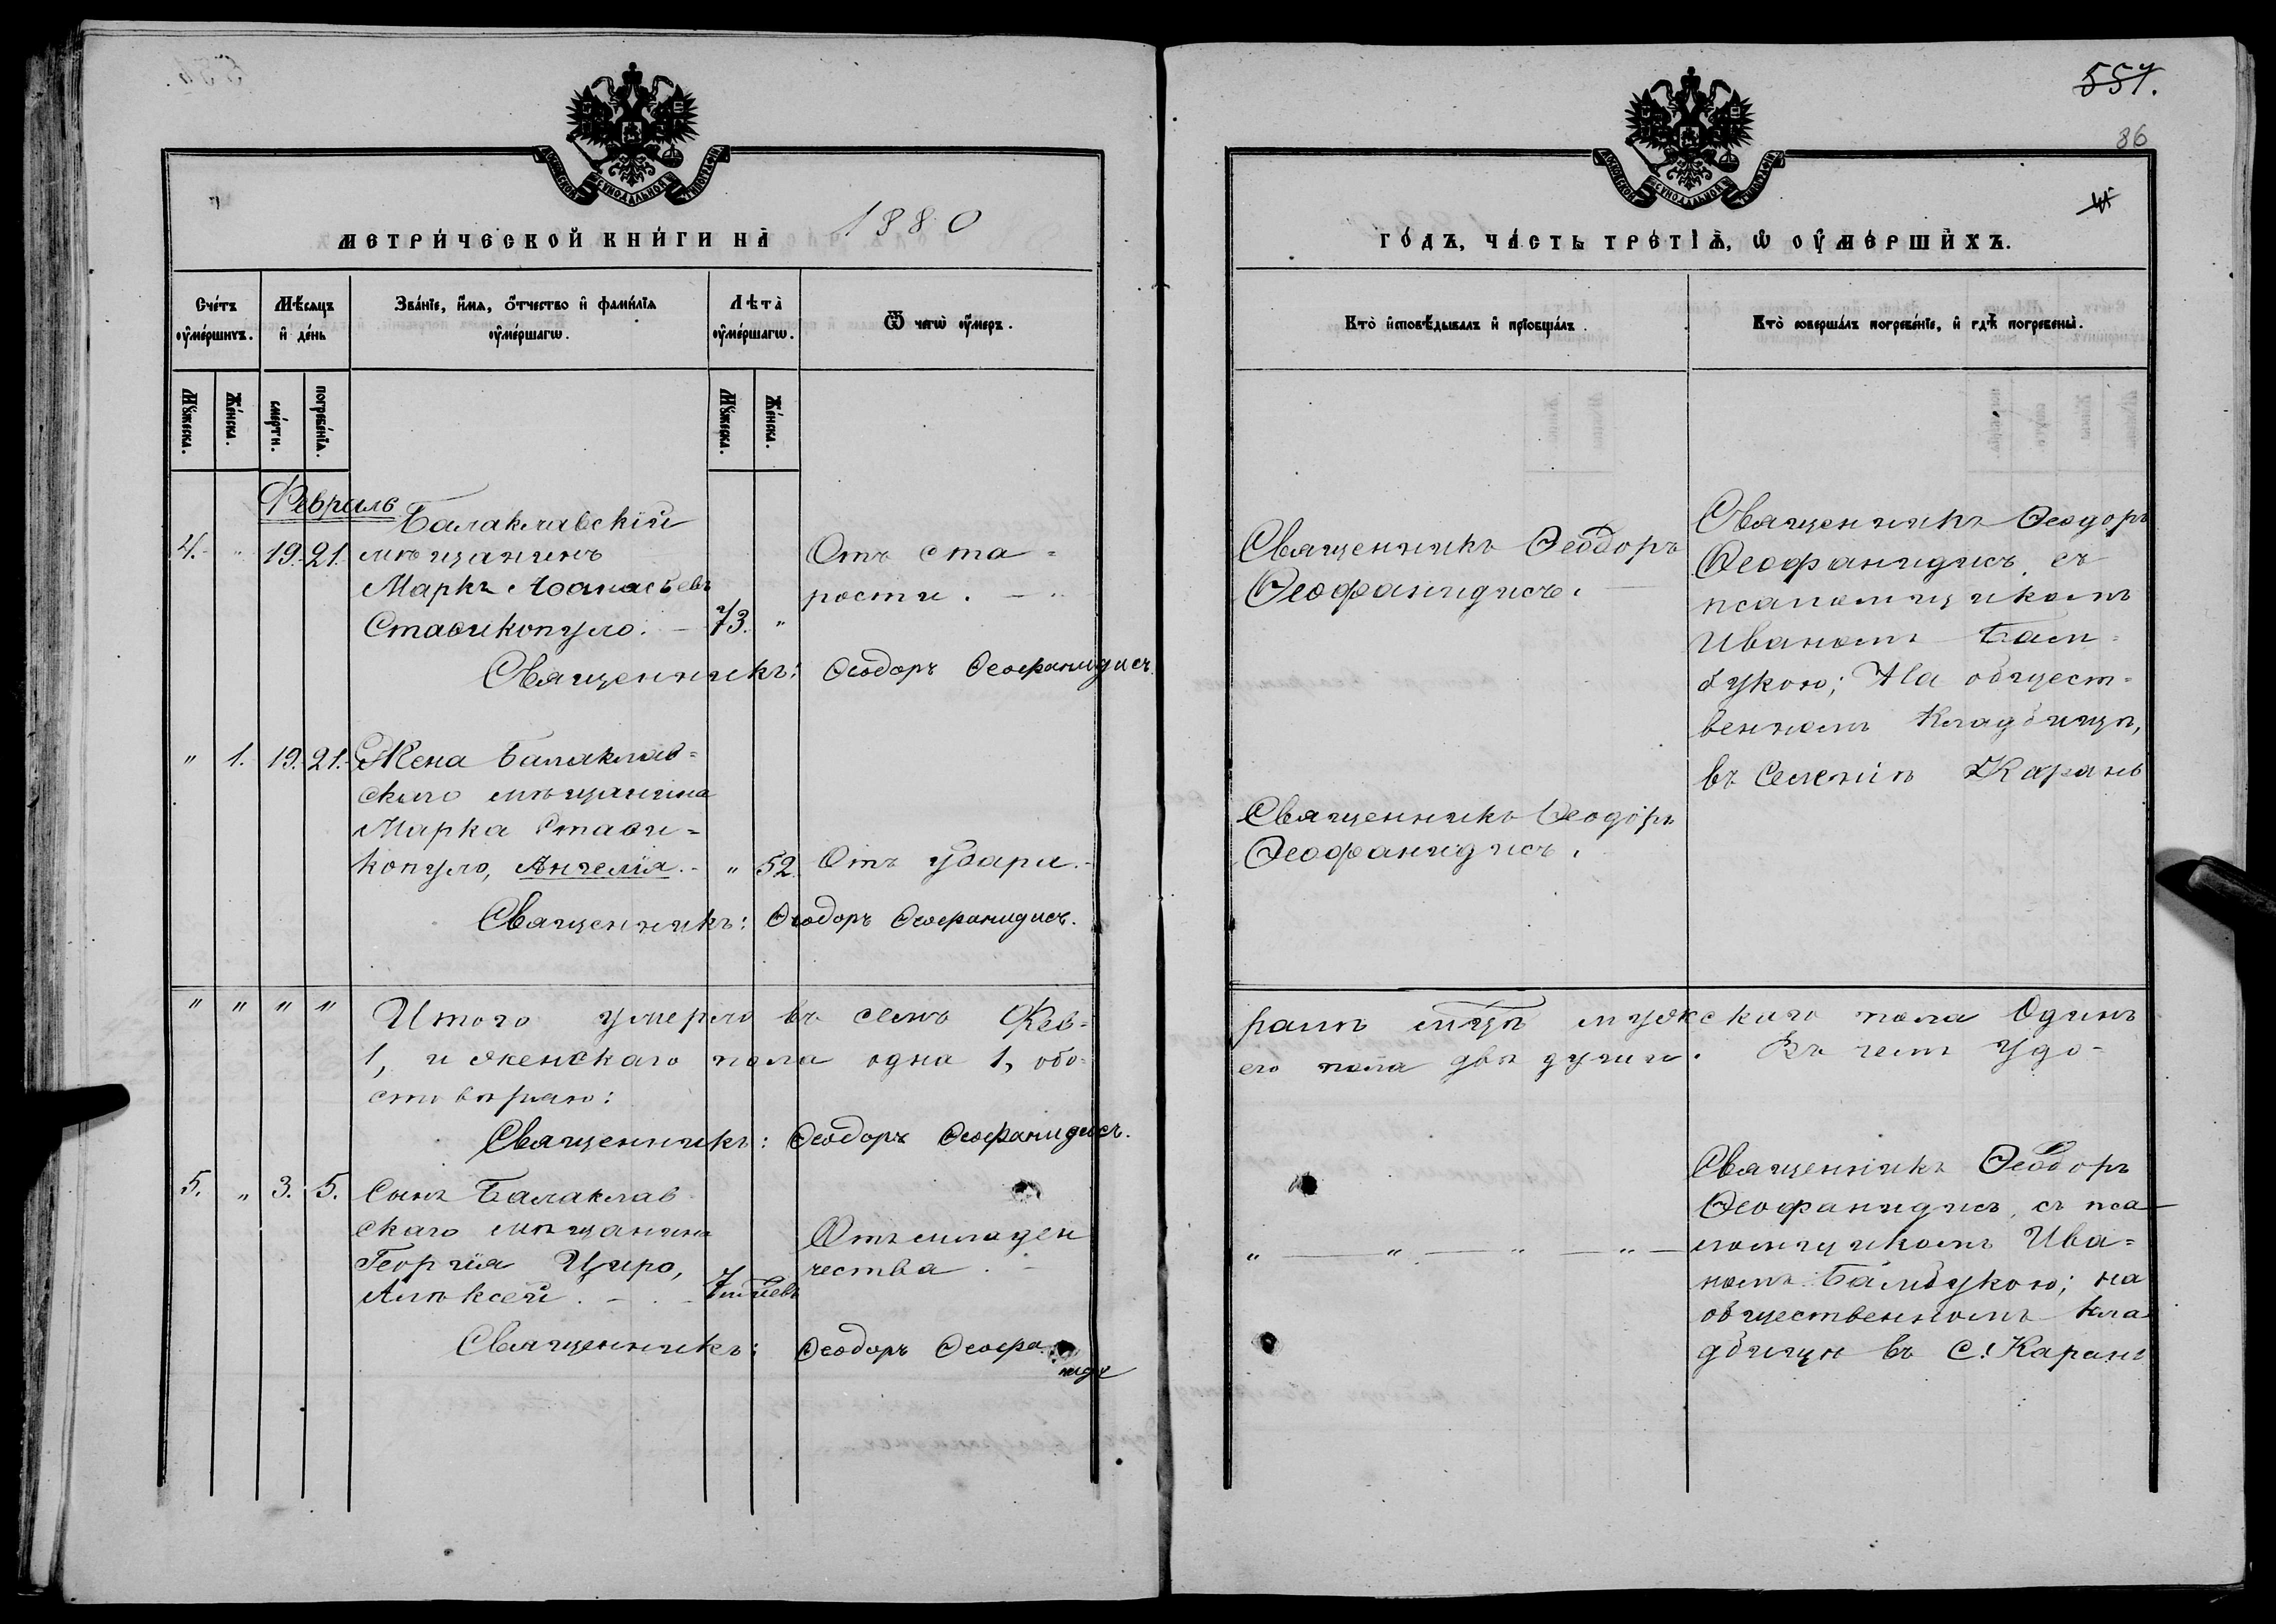 554.
86
МОСКОВСКОЙ СѴНОДАЛЬНОЙ ТИПОГРАФІИ
МОСКОВСКОЙ СѴНОДАЛЬНОЙ ТИПОГРАФІИ
МЕТРИ́ЧЕСКОЙ КНИ́ГИ НА̀ 1880
ГО́ДЪ, ЧА́СТЬ ТРЕ́ТІѦ, Ѡ҆ ОУ҆МЕ́РШИХЪ.
Сче́тъ оу҆ме́ршихъ.
Мѣ́сѧцъ и҆ де́нь
Зва́нїе, и҆́мѧ, ѻ҆́тчество и҆ фамі́лїѧ оу҆ме́ршагѡ.
Лѣ́та̀ оу҆ме́ршагѡ.
Ѿ чегѡ̀ оу҆́меръ.
Кто̀ и҆сповѣ́дывалъ и҆ прїобща́лъ.
Кто̀ соверша́лъ погребе́нїе, и҆ гдѣ̀ погребены̀.
Мꙋ́жеска. Же́нска. сме́рти. погребе́нїѧ. Мꙋ́жеска. Же́нска.
Февраль
4. " 19. 21. Балаклавскій
мѣщанинъ
Маркъ Аѳанасьевъ
Ставикопуло. — 73. "
Отъ ста=
рости. —
Священникъ: Ѳеодоръ Ѳеофанидисъ.
Священникъ Ѳеодоръ
Ѳеофанидисъ. —
Священникъ Ѳеодоръ
Ѳеофанидисъ, съ
псаломщикомъ
Иваномъ Бам=
букою; На общест=
венномъ кладбищѣ,
въ Селеніи Карань
" 1. 19. 21. Жена Балаклав=
скаго мѣщанина
Марка Стави=
копуло, Ангелія. — " 52. Отъ удара. —
Священникъ: Ѳеодоръ Ѳеофанидисъ.
Священникъ Ѳеодоръ
Ѳеофанидисъ.
" " " " Итого умерло въ семъ Фев=
ралѣ мцѣ мужскаго пола Одинъ
1, и женскаго пола одна 1, обо=
его пола двѣ души. Въ чемъ удо=
стовѣряю:
Священникъ: Ѳеодоръ Ѳеофанидисъ.
5. " 3. 5. Сынъ Балаклав
скаго мѣщанина
Георгія Циро,
Алѣксей. — 7 мцевъ
Отъ младен
чества. —
Священникъ: Ѳеодоръ Ѳеофа
нидис
" — " — " — " —
Священникъ Ѳеодоръ
Ѳеофанидисъ, съ пса
ломщикомъ Ива=
номъ Бамбукою; на
общественномъ кла
дбищѣ въ С. Карань